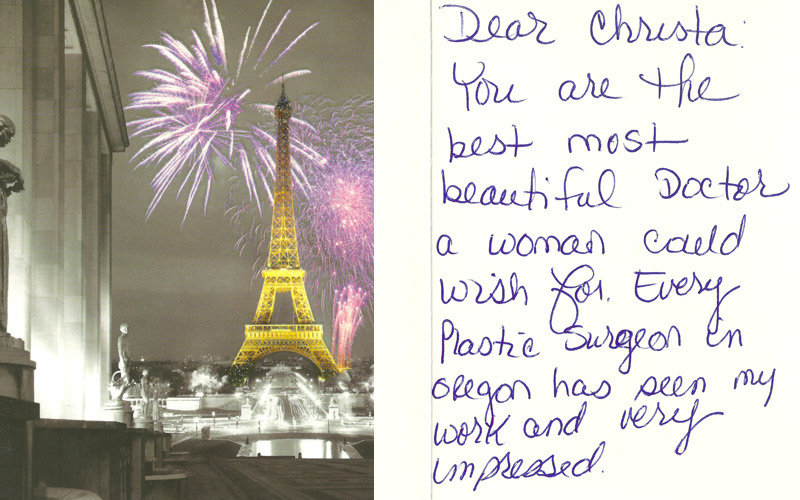 Dear Christa:
You are the
best most
beautiful Doctor
a woman could
wish for. Every
Plastic Surgeon in
oregon has seen my
work and very
impressed.